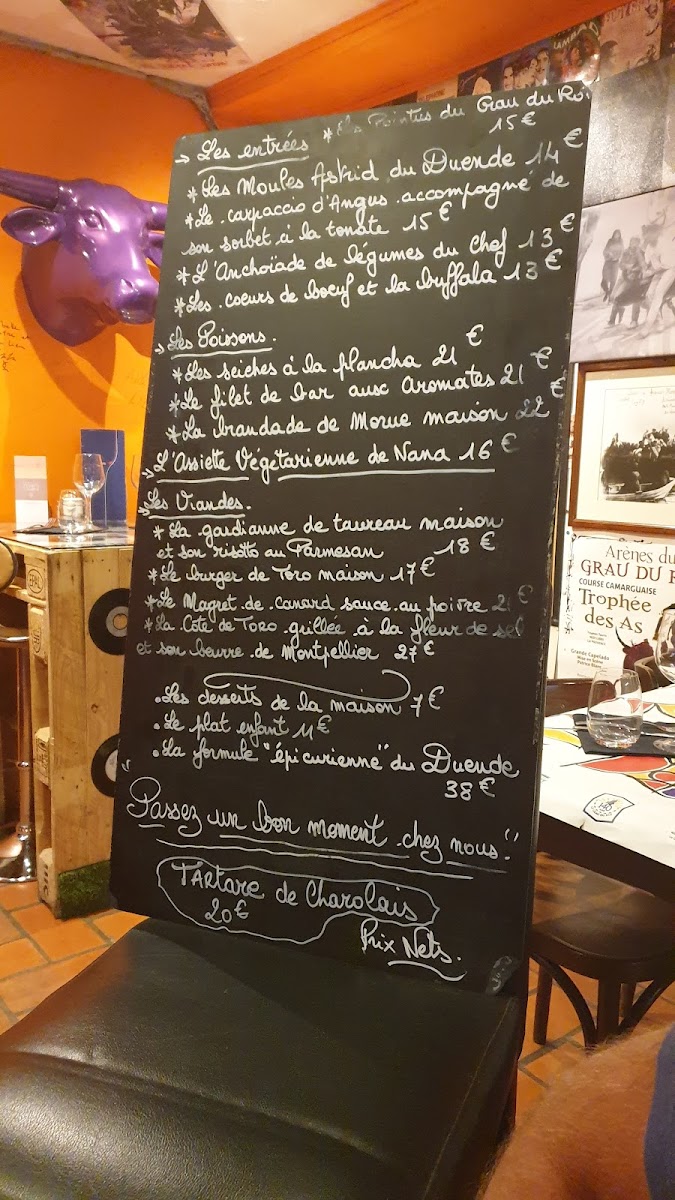 → Les entrées * Les Pointus du Grau du Roi
15 €
* Les Moules Astrid du Duende 14 €
* Le carpaccio d'Angus accompagné de
son sorbet à la tomate 15 €
* L'Anchoïade de légumes du chef 13 €
* Les coeurs de boeuf et la buffala 13 €
→ Les Poissons.
* Les seiches à la plancha 21 €
* Le filet de bar aux Aromates 21 €
* La brandade de Morue maison 22 €
→ L'Assiette Végétarienne de Nana 16 €
→ Les Viandes.
* La gardianne de taureau maison
et son risotto au Parmesan 18 €
* Le burger de Toro maison 17 €
* Le Magret de canard sauce au poivre 21 €
* La Côte de Toro grillée à la fleur de sel
et son beurre de Montpellier 27 €
. Les desserts de la maison 7 €
. Le plat enfant 11 €
. La formule "épicurienne" du Duende
38 €
Passez un bon moment chez nous!
TARTARE de Charolais
20 €
Prix Nets.
Arènes du
GRAU DU R
COURSE CAMARGUAISE
Trophée
des As